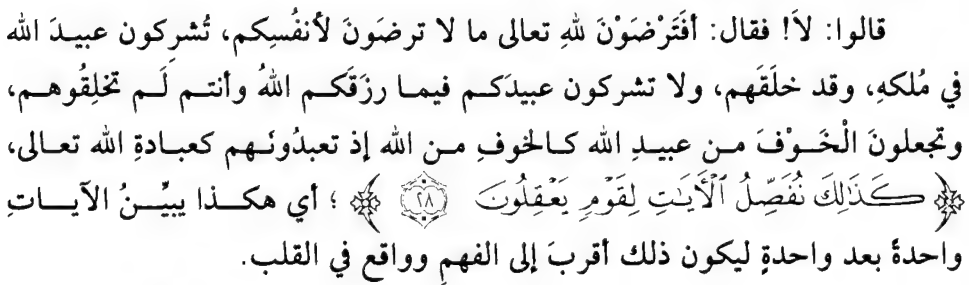 قالوا: لاَ! فقال: أفَتَرْضَوْنَ للهِ تعالى ما لا ترضَونَ لأنفُسِكم، تُشرِكون عبيدَ الله
في مُلكهِ، وقد خلَقَهم، ولا تشركون عبيدَكم فيما رزَقَكم اللهُ وأنتم لَم تخلِقُوهم،
وتجعلونَ الْخَوْفَ من عبيدِ الله كالخوفِ من الله إذ تعبدُونَهم كعبادةِ الله تعالى،
﴿ كَذَٰلِكَ نُفَصِّلُ ٱلْأَيَٰتِ لِقَوْمٍ يَعْقِلُونَ ٢٨ ﴾ ؛ أي هكذا يبيِّنُ الآياتِ
واحدةً بعد واحدةٍ ليكون ذلك أقربَ إلى الفهمِ وواقع في القلب.